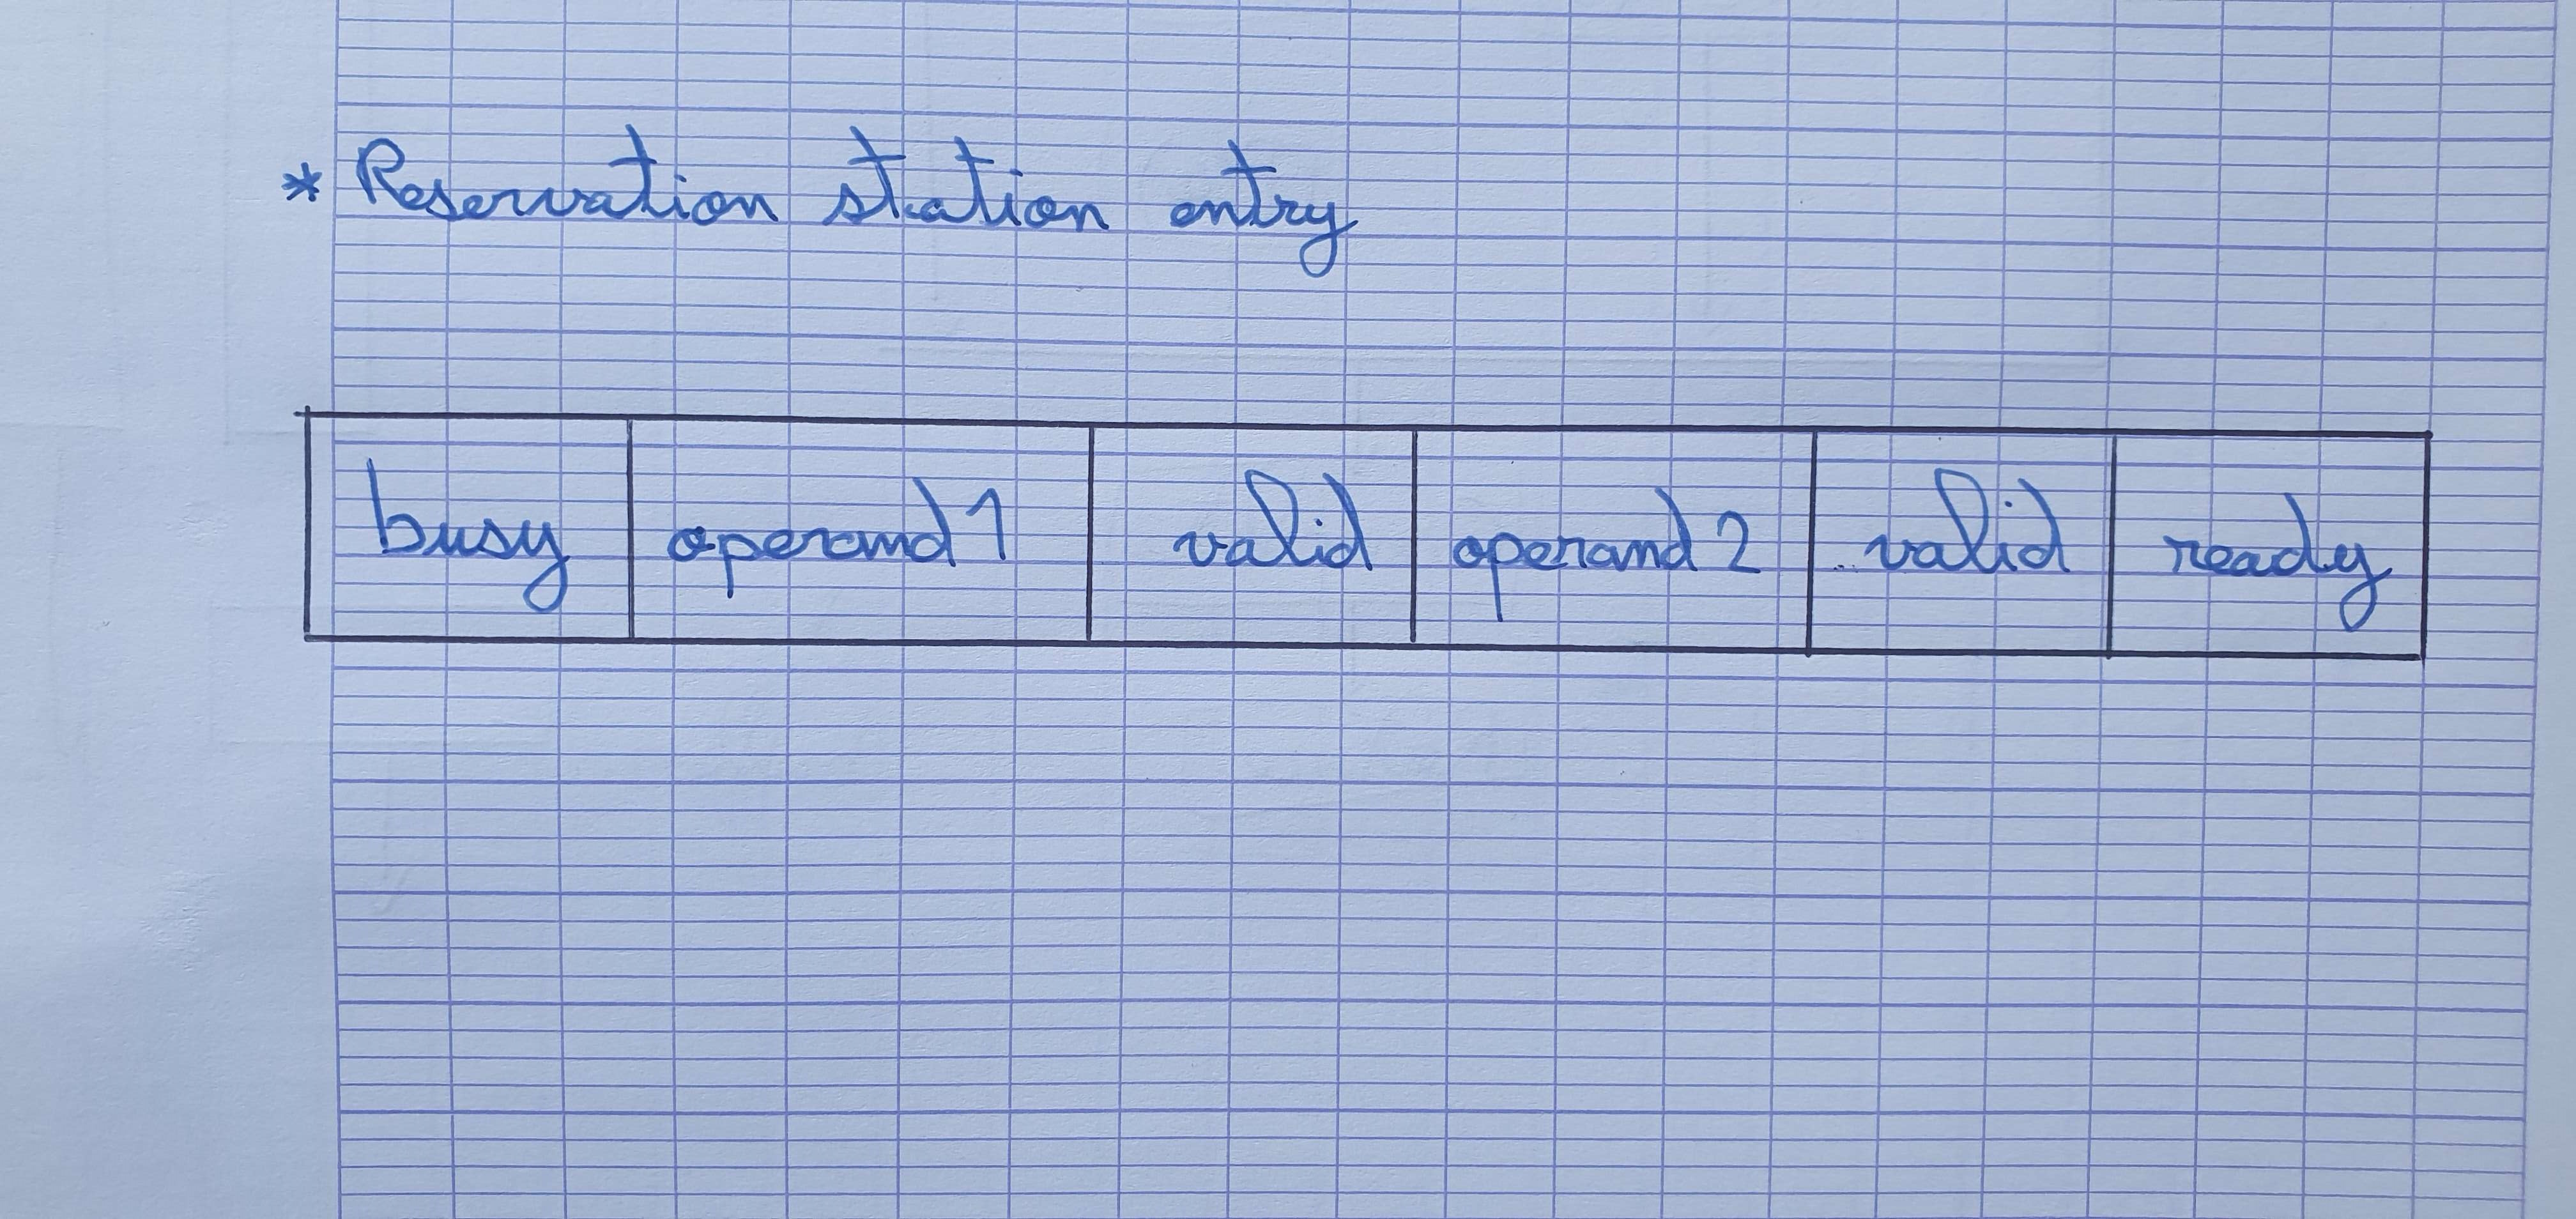 * Reservation station entry
busy operand 1 valid operand 2 valid ready